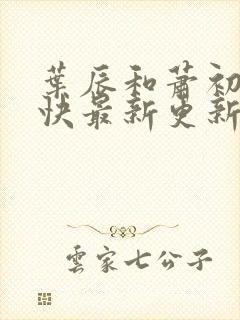 葉辰和蕭初
快最新更新
雲家七公子